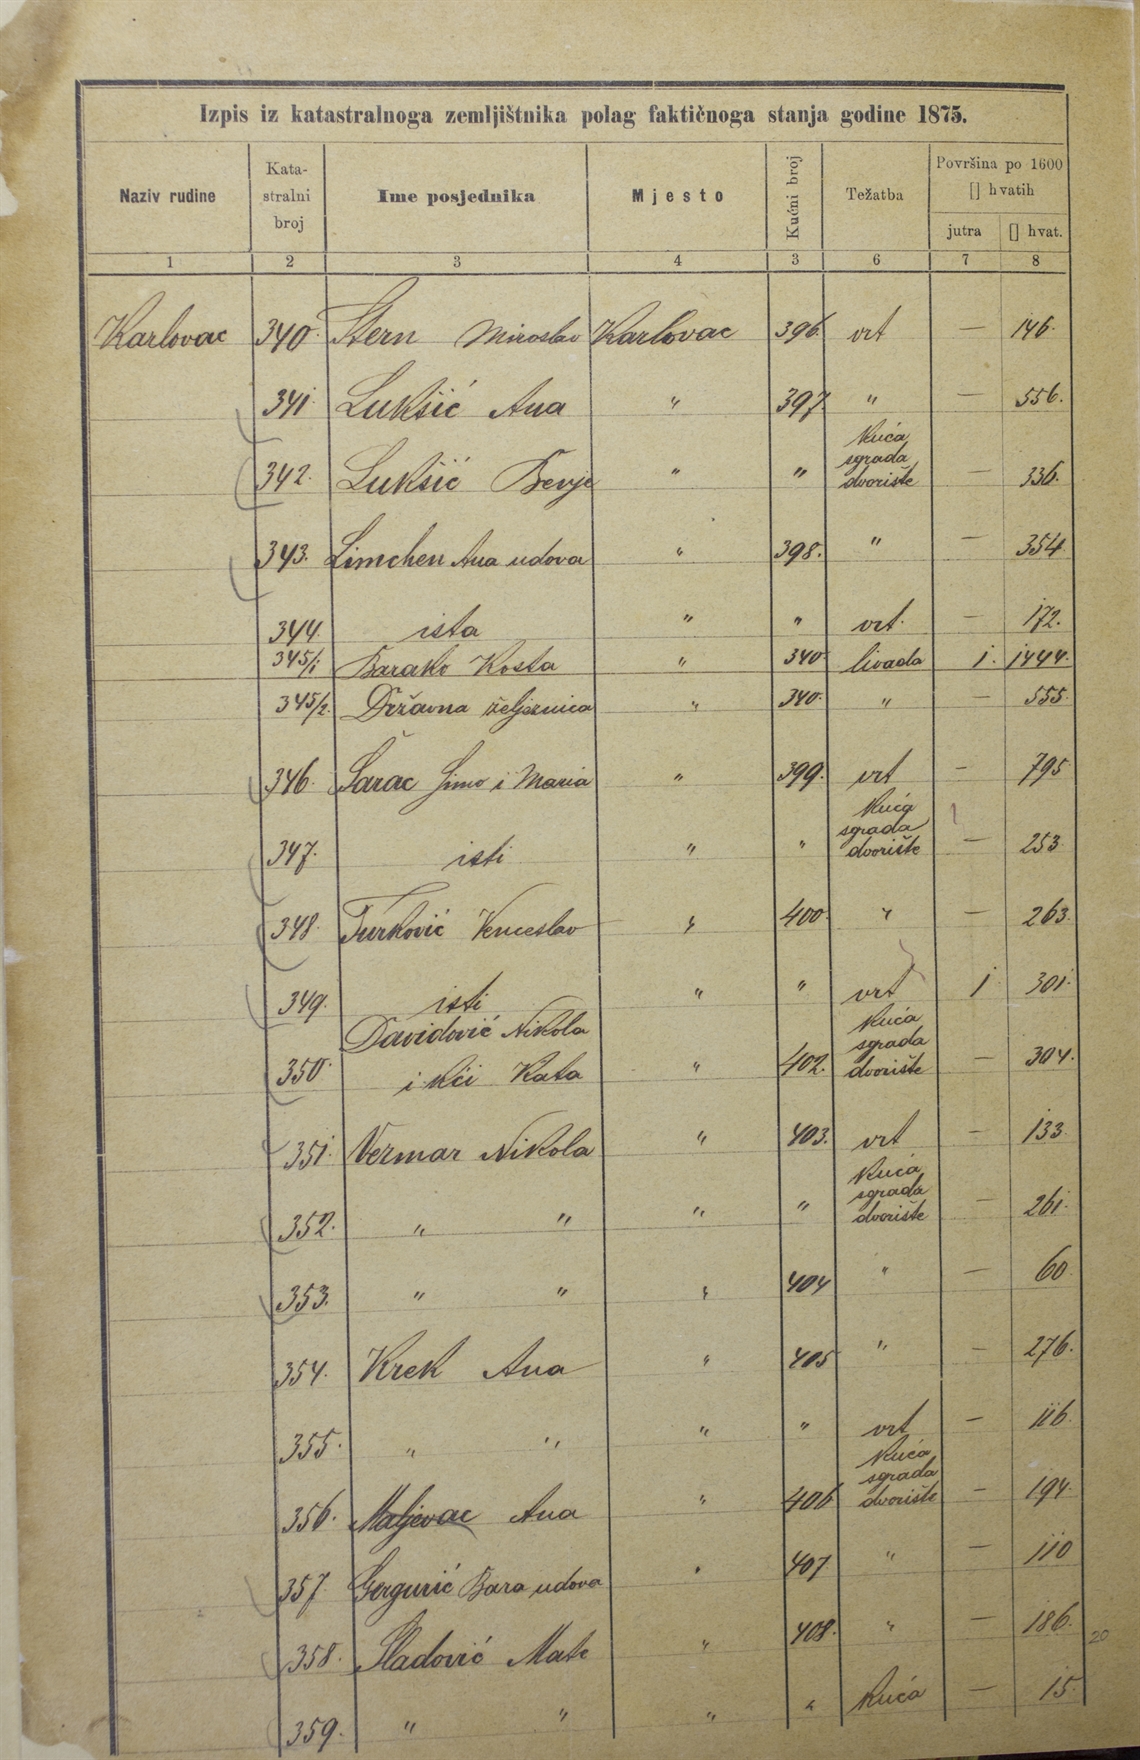 Izpis iz katastralnoga zemljištnika polag faktičnoga stanja godine 1875.
Naziv rudine Kata-stralni broj Ime posjednika Mjesto Kućni broj Težatba Površina po 1600 [] hvatih
jutra [] hvat.
1 2 3 4 3 6 7 8
Karlovac 340. Stern Miroslav Karlovac 396. vrt — 146.
341. Lukšić Ana " 397. " — 556.
342. Lukšić " " Kuća sgrada dvorište — 336.
343. Limchen Ana udova " 398. " — 354
344. ista " " vrt. — 172.
345/1 Barako Kosta " 340. livada 1. 1444.
345/2. Državna željeznica " 340. " — 555.
346. Šarac Simo i Maria " 399. vrt — 795
347. isti " " Kuća sgrada dvorište — 253.
348. Turković Venceslav " 400. " — 263.
349. isti " " vrt 1 301.
350. Davidović Nikola
i kći Kata " 402. Kuća sgrada dvorište — 304.
351. Vermar Nikola " 403. vrt — 133.
352. " " " " Kuća sgrada dvorište — 261.
353. " " " 404 " — 60.
354. Krek Ana " 405 " — 276.
355. " " " " vrt — 116.
356. Maljevac Ana " 406 Kuća sgrada dvorište — 194.
357. Gergurić Bara udova " 407. " — 110
358. Sladović Mate " 408. " — 186.
20
359. " " " " Kuća — 15.